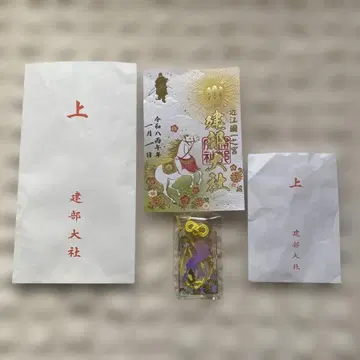 上
建部大社
近江國一之宮
建部大社
令和八丙午年
一月一日
上
建部大社